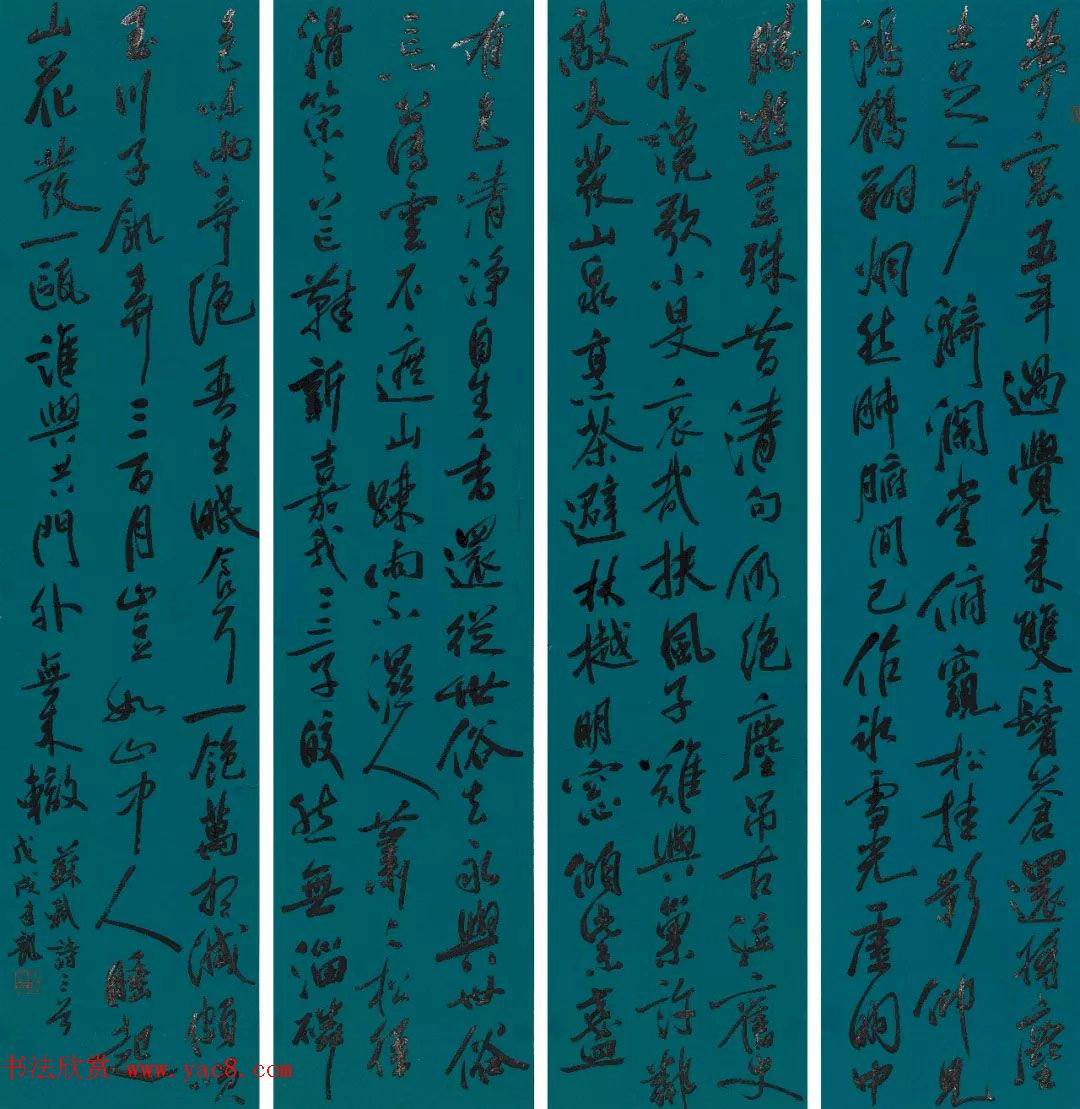 夢裏五年過覺來雙鬢蒼還將塵
土足一步漪瀾堂俯窺松桂影仰見
鴻鶴翔炯然肺腑間已作冰雪光虛明中
勝遊豈殊昔清句仍絕塵吊古泣舊史
疾讒歌小旻哀哉扶風子難與巢許鄰
敲火發山泉烹茶避林樾明窗傾紫盞
有色清淨自生香還從世俗去永與世俗
忘薄雲不遮山疎雨不濕人蕭々松徑
滑策々芒鞵新嘉我二三子皎然無淄磷
色味兩奇絕吾生眠食耳一飽萬想滅頗笑
玉川子飢弄三百月豈如山中人睡起
山花發一甌誰與共門外無來轍
蘇軾詩三首
戊戌
书法欣赏 www.yac8.com